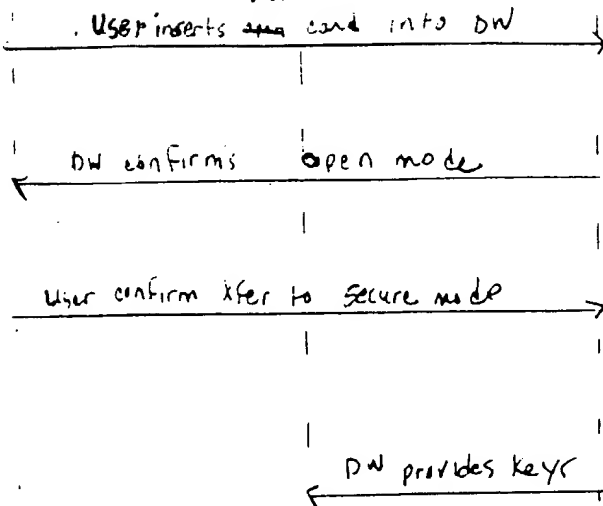 User inserts card into DW
DW confirms open mode
User confirm Xfer to secure mode
DW provides keys